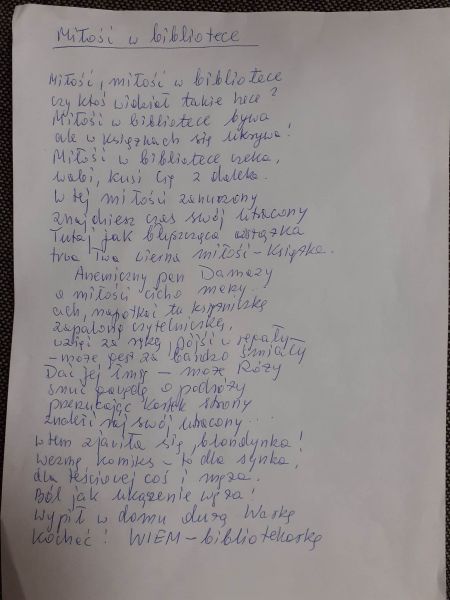 Miłość w bibliotece
Miłość, miłość w bibliotece
czy ktoś widział takie hece?
Miłość w bibliotece bywa
ale w książkach się ukrywa!
Miłość w bibliotece czeka,
wabi, kusi Cię z daleka.
W tej miłości zanurzony
znajdziesz czas swój utracony
Tutaj jak błyszcząca wstążka
trwa Twa wierna miłość - książka.
Anemiczny pan Damazy
o miłości cicho marzy.
ach, napotkać tu księżniczkę
zapaloną czytelniczkę,
wziąć za rękę, pójść w regały -
- może gest za bardzo śmiały
Dać jej Imię - może Róży
snuć gawędę o podróży
przerzucając kartek strony
znaleźć raj swój utracony...
wtem zjawiła się blondynka!
Wezmę komiks - to dla synka,
dla teściowej coś i męża.
Ból jak ukąszenie węża!
Wypił w domu dużą Warkę
Kochać! WIEM - bibliotekarkę